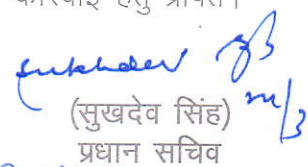 कार्रवाई हेतु प्रेषित।
Sukhdev
(सुखदेव सिंह)
प्रधान सचिव